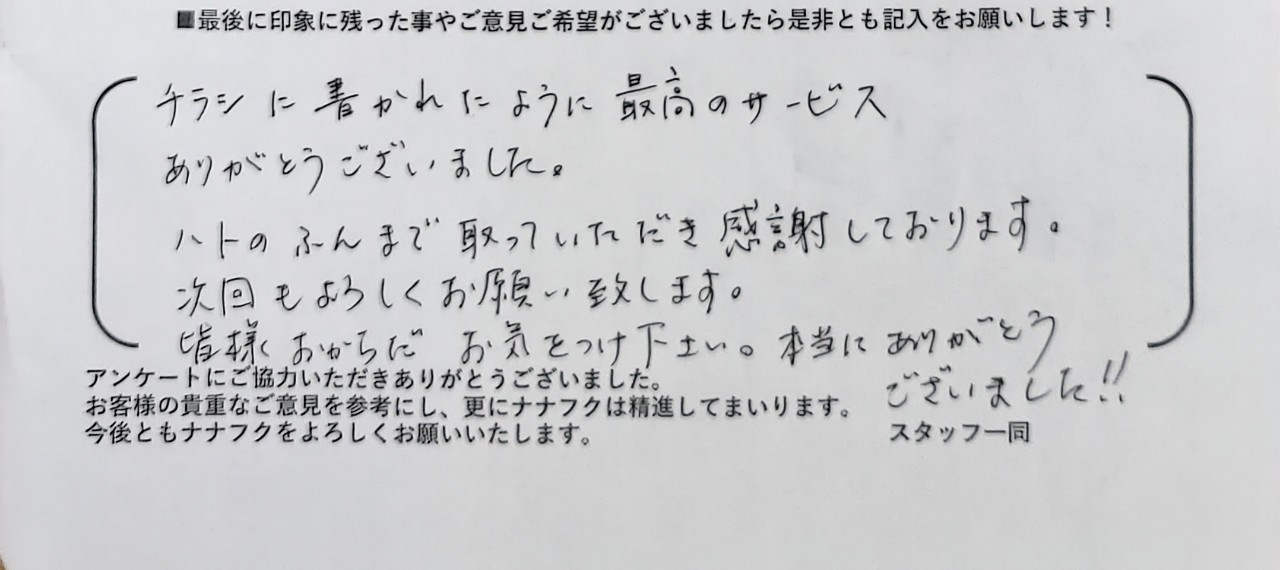 ■最後に印象に残った事やご意見ご希望がございましたら是非とも記入をお願いします！
チラシに書かれたように最高のサービス
ありがとうございました。
ハトのふんまで取っていただき感謝しております。
次回もよろしくお願い致します。
皆様おからだ お気をつけ下さい。本当にありがとう
ございました!!
アンケートにご協力いただきありがとうございました。
お客様の貴重なご意見を参考にし、更にナナフクは精進してまいります。
今後ともナナフクをよろしくお願いいたします。
スタッフ一同